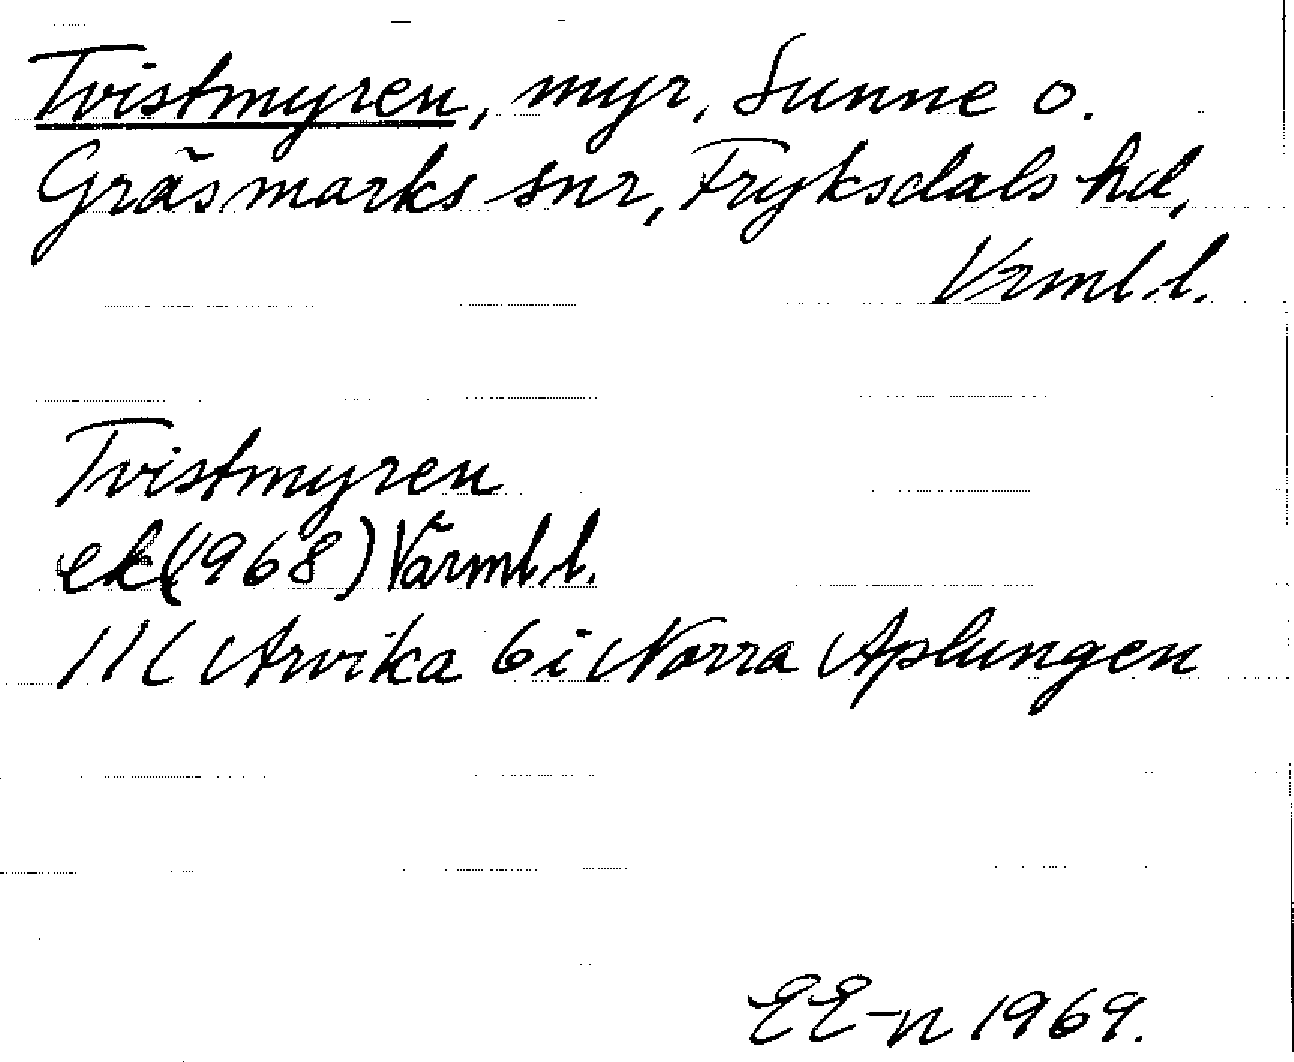 Tvistmyren, myr, Sunne o.
Gräsmarks snr, Fryksdals hd,
Vrml.l.
Tvistmyren
ek (1968) Värml.l.
11C Arvika 6i Norra Aplungen
EE-n 1969.